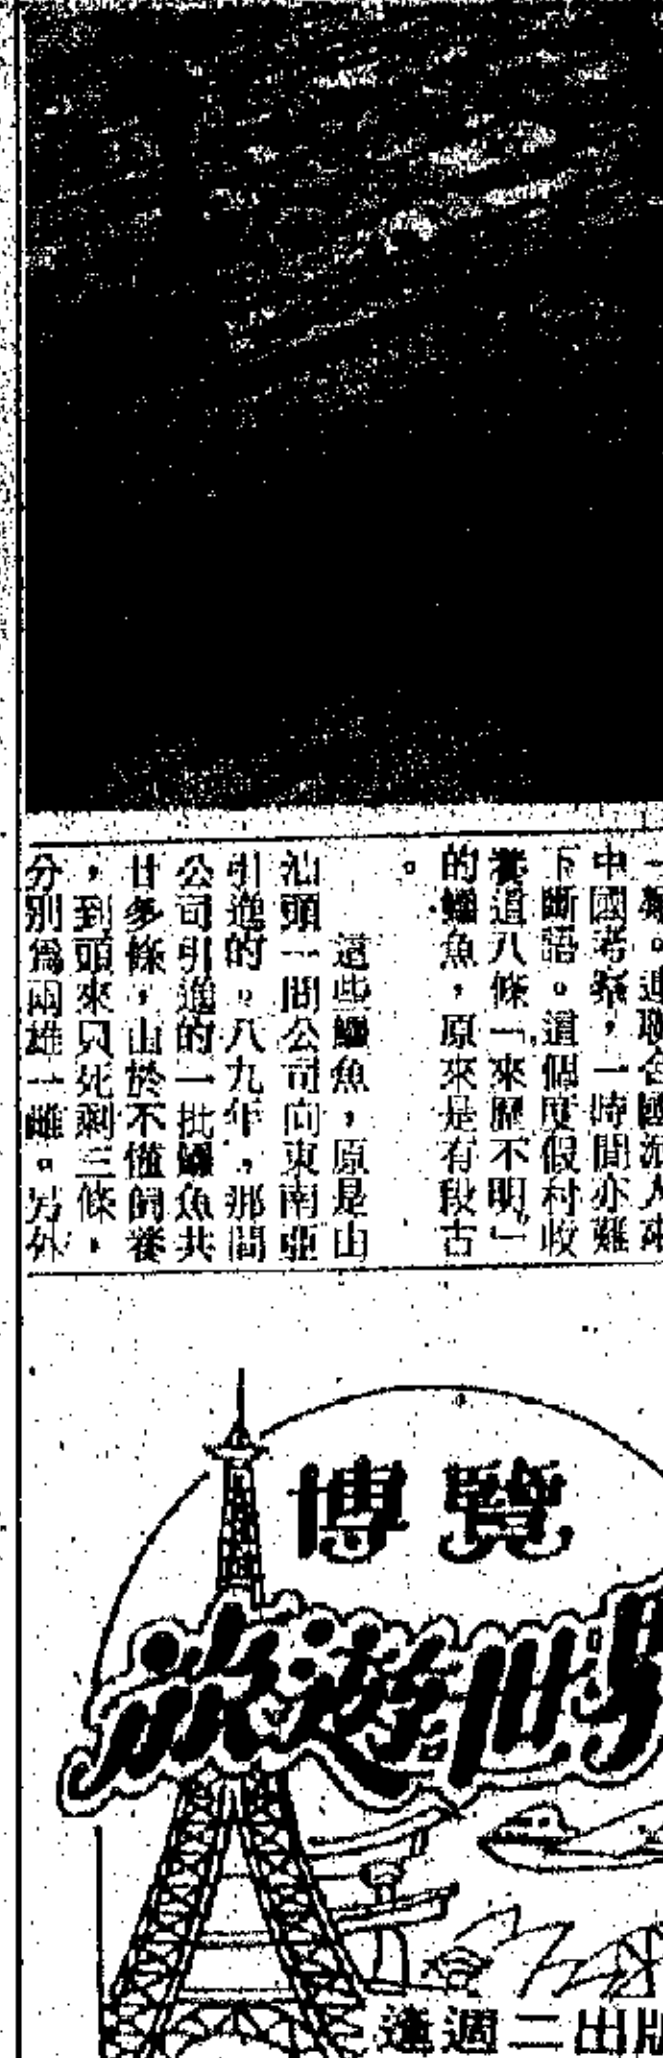 中國考察，一時間亦難
下斷語。這個度假村收
養這八條「來歷不明」
的鱷魚，原來是有段古
。
這些鱷魚，原是由
汕頭一間公司向東南亞
引進的。八九年，那間
公司引進的一批鱷魚共
廿多條，由於不懂飼養
，到頭來只死剩三條，
分別為兩雄一雌。另外
博覽
旅遊世
逢週二出版